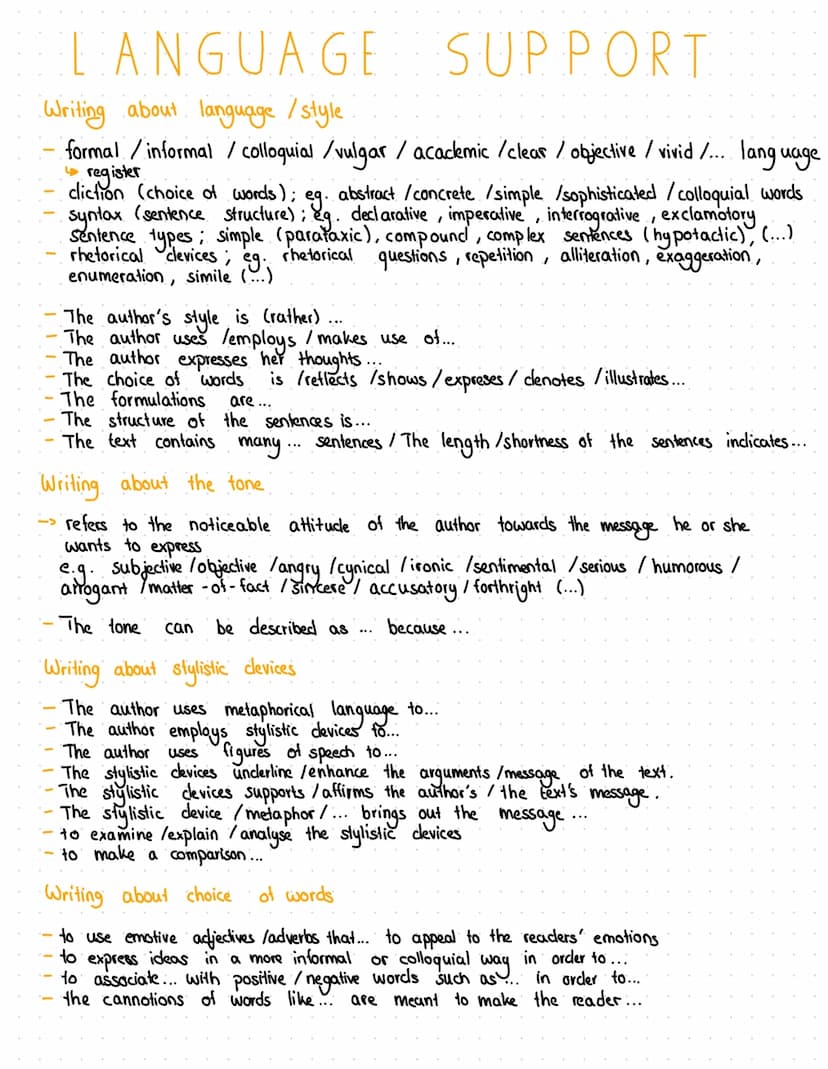 LANGUAGE SUPPORT
Writing about language / style
- formal / informal / colloquial / vulgar / academic / clear / objective / vivid /... language
↳ register
- diction (choice of words); eg. abstract / concrete / simple / sophisticated / colloquial words
- syntax (sentence structure); eg. declarative, imperative, interrogrative, exclamotory
sentence types; simple (parataxic), compound, complex sentences (hypotactic), (...)
- rhetorical devices; eg. rhetorical questions, repetition, alliteration, exaggeration,
enumeration, simile (...)
- The author's style is (rather) ...
- The author uses / employs / makes use of...
- The author expresses her thoughts ...
- The choice of words is / reflects / shows / expreses / denotes / illustrates...
- The formulations are ...
- The structure of the sentences is...
- The text contains many ... sentences / The length / shortness of the sentences indicates...
Writing about the tone
-> refers to the noticeable attitude of the author towards the message he or she
wants to express
e.g. subjective / objective / angry / cynical / ironic / sentimental / serious / humorous /
arrogant / matter-of-fact / sincere / accusatory / forthright (...)
- The tone can be described as ... because ...
Writing about stylistic devices
- The author uses metaphorical language to...
- The author employs stylistic devices to...
- The author uses figures of speech to...
- The stylistic devices underline / enhance the arguments / message of the text.
- The stylistic devices supports / affirms the author's / the text's message.
- The stylistic device / metaphor / ... brings out the message ...
- to examine / explain / analyse the stylistic devices
- to make a comparison...
Writing about choice of words
- to use emotive adjectives / adverbs that... to appeal to the readers' emotions
- to express ideas in a more informal or colloquial way in order to ...
- to associate... with positive / negative words such as... in order to...
- the cannotions of words like... are meant to make the reader ...